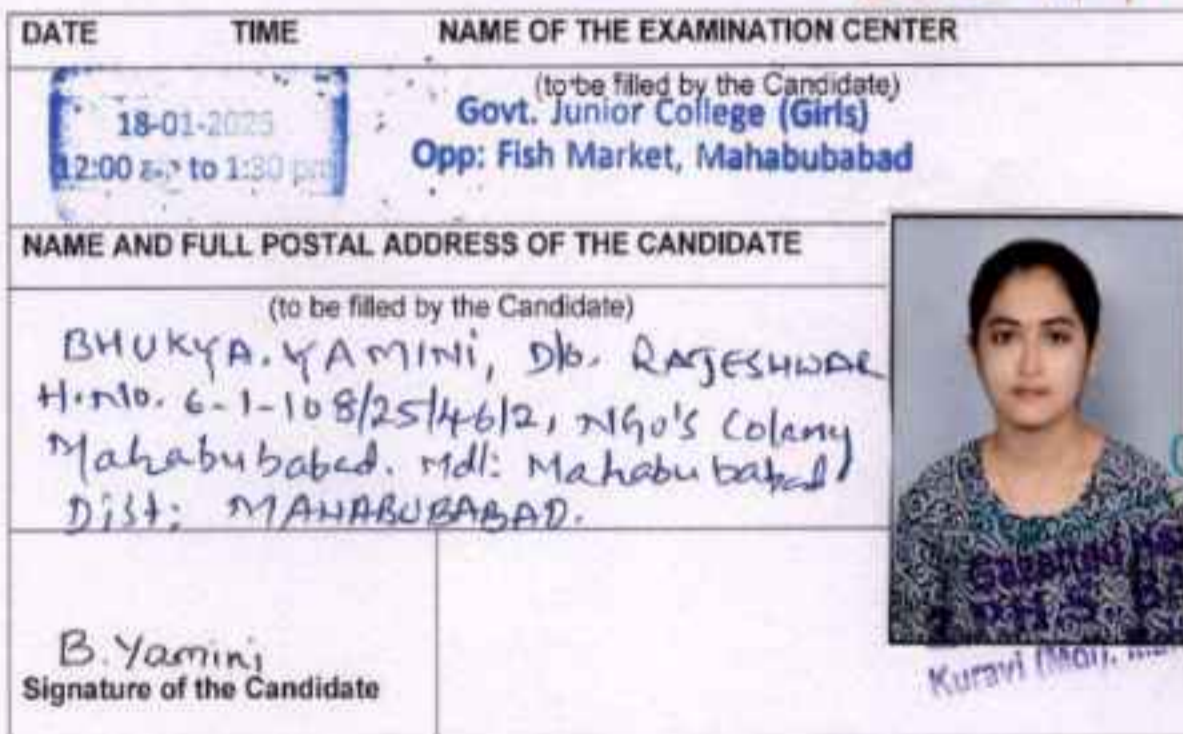 DATE TIME NAME OF THE EXAMINATION CENTER
(to be filled by the Candidate)
18-01-2025 Govt. Junior College (Girls)
12:00 to 1:30 pm Opp: Fish Market, Mahabubabad
NAME AND FULL POSTAL ADDRESS OF THE CANDIDATE
(to be filled by the Candidate)
BHUKYA. YAMINI, D/o. RAJESHWAR
H.No. 6-1-108/25/46/2, NGO's Colony
Mahabubabad. Mdl: Mahabubabad
Dist: MAHABUBABAD.
B. Yamini
Signature of the Candidate
Gazetted
Kuravi (Mdl),